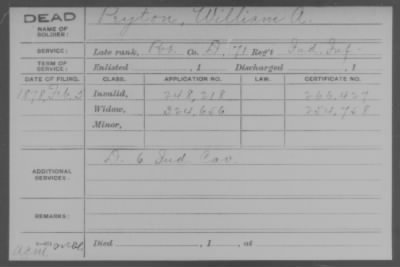 DEAD
NAME OF SOLDIER: Peyton, William A.
SERVICE: Late rank, Co. D, 71 Reg't Ind. Inf.
TERM OF SERVICE: Enlisted , 1 Discharged , 1
DATE OF FILING. CLASS. APPLICATION NO. LAW. CERTIFICATE NO.
1878, Feb. 5 Invalid, 248,218 266,427
Widow, 324,656 254,758
Minor,
ADDITIONAL SERVICES: D. 6 Ind Cav.
REMARKS:
Died , 1 , at